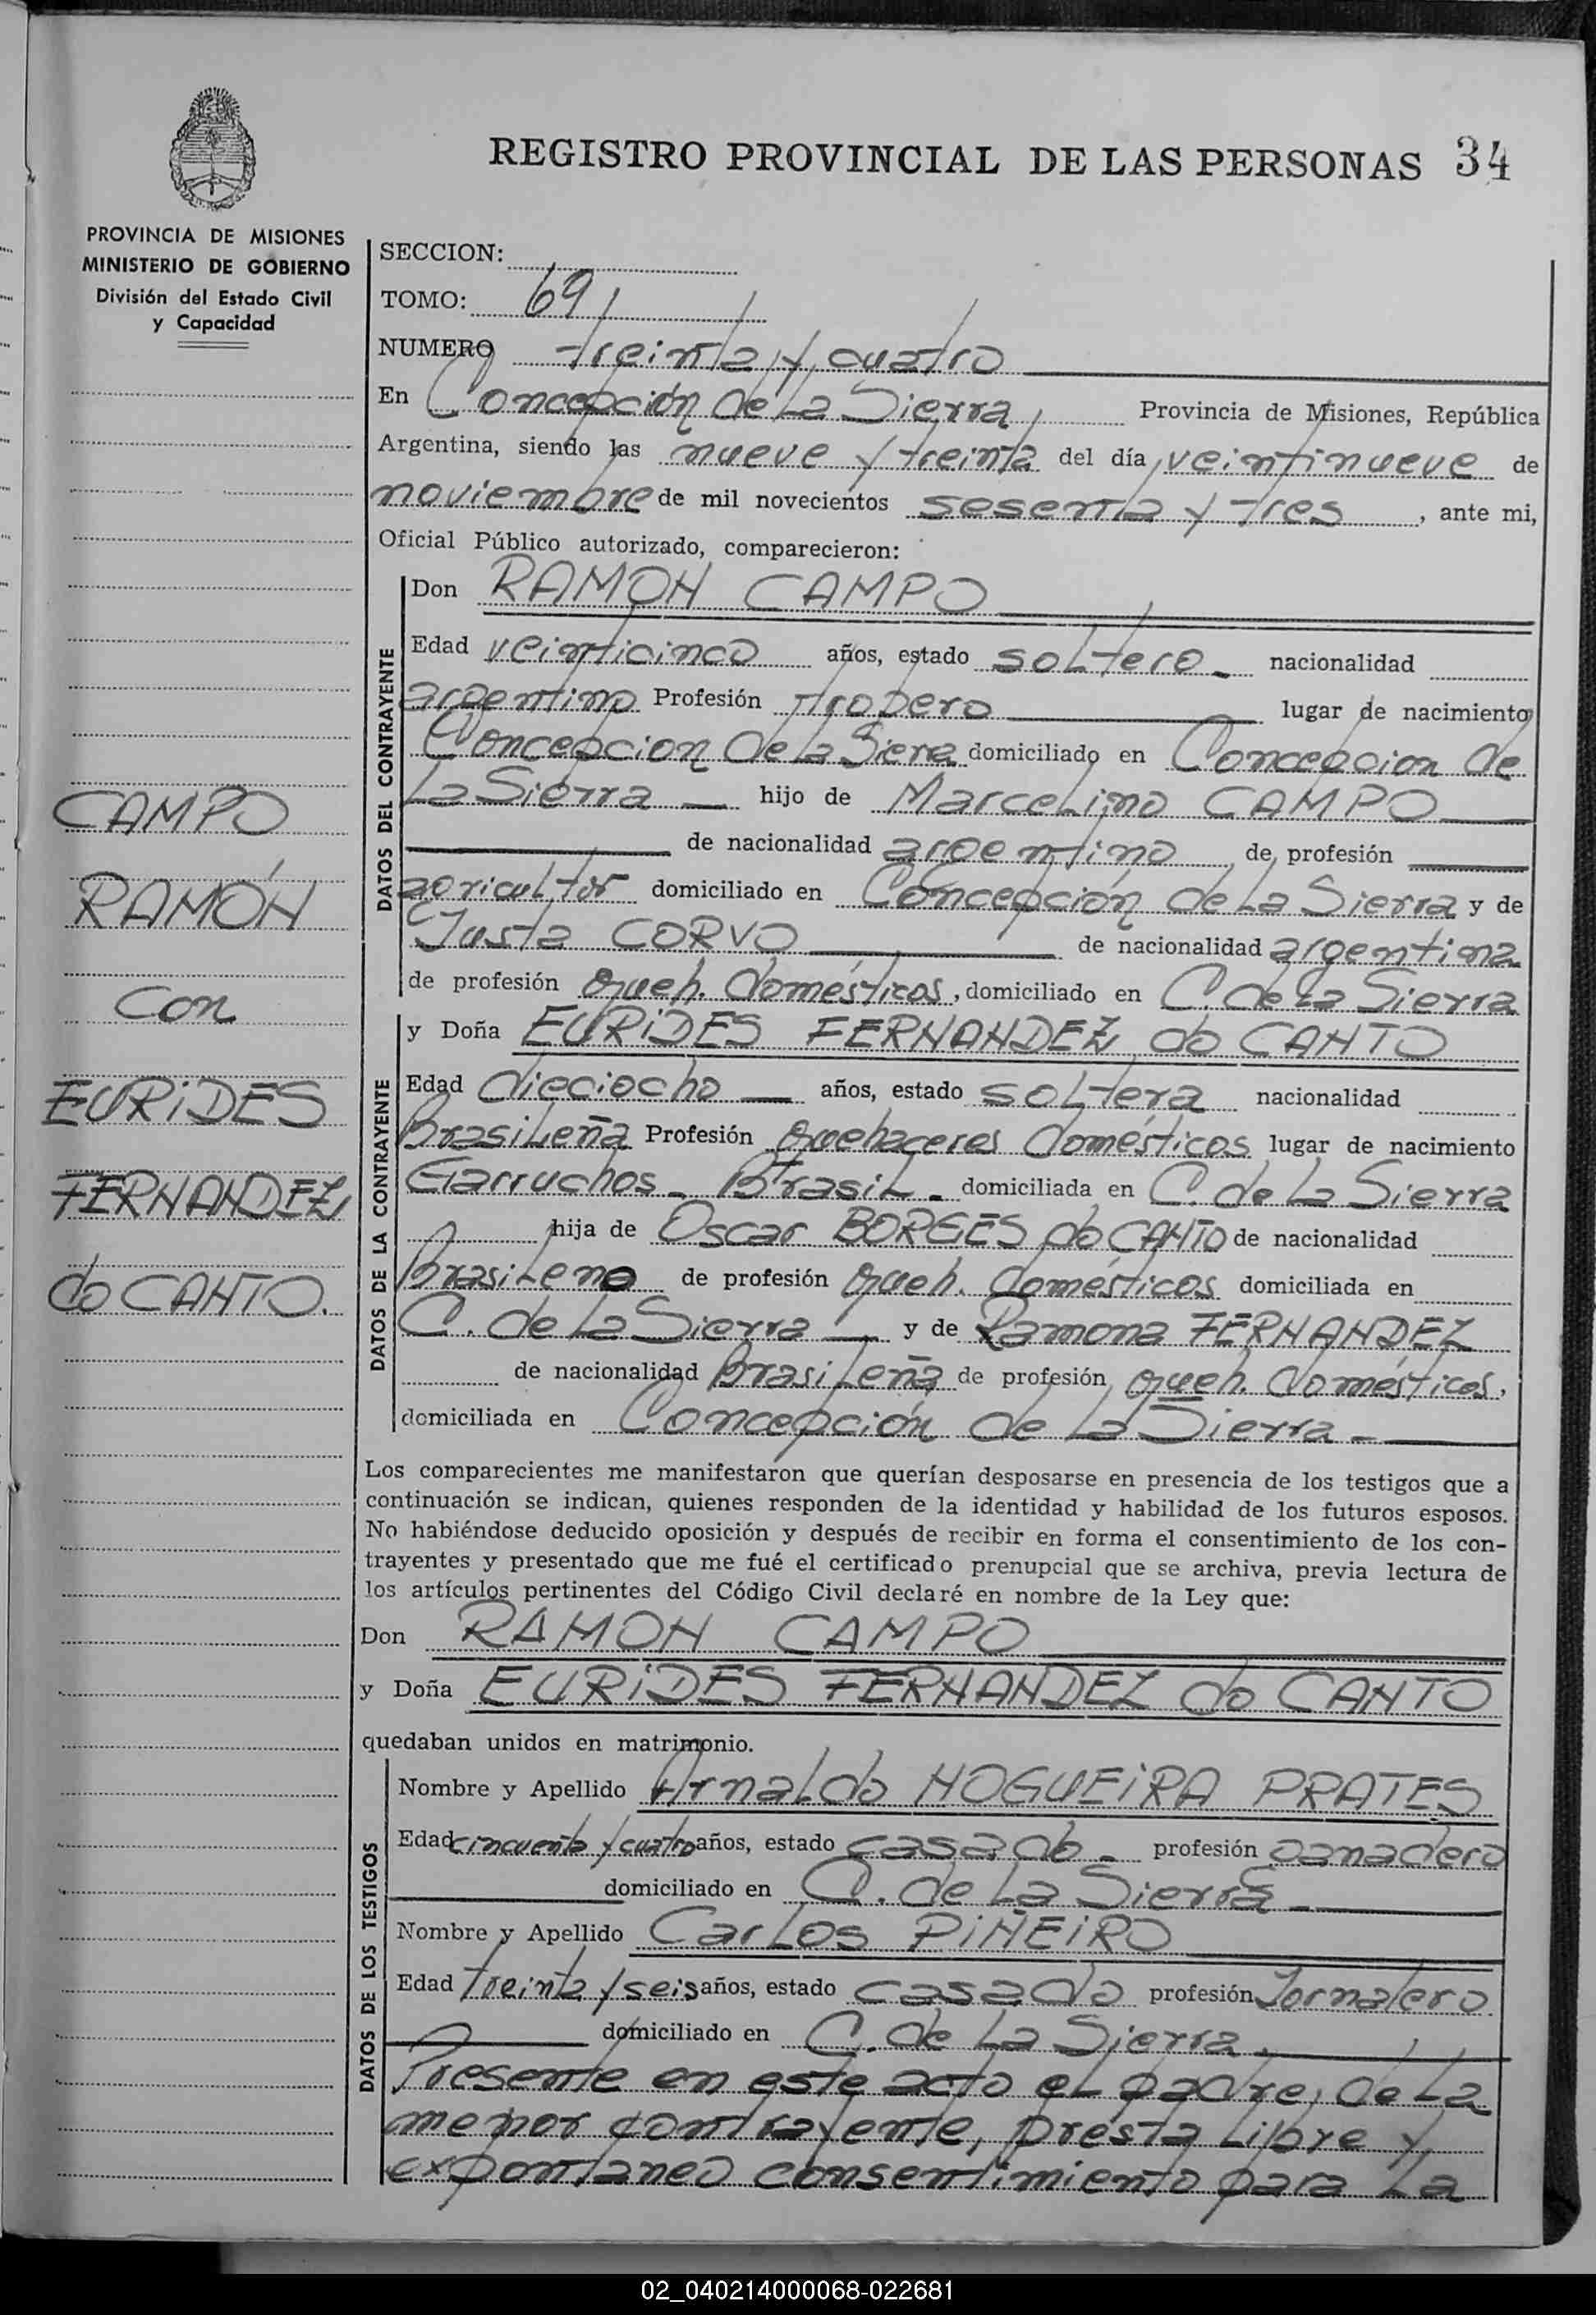 REGISTRO PROVINCIAL DE LAS PERSONAS 34
PROVINCIA DE MISIONES
MINISTERIO DE GOBIERNO
División del Estado Civil
y Capacidad
CAMPO
RAMÓN
con
EURIDES
FERNANDEZ
do CANTO.
SECCION:
TOMO: 69
NUMERO treinta y cuatro
En Concepción de La Sierra Provincia de Misiones, República
Argentina, siendo las nueve y treinta del día veintinueve de
noviembre de mil novecientos sesenta y tres, ante mi,
Oficial Público autorizado, comparecieron:
DATOS DEL CONTRAYENTE
Don RAMON CAMPO
Edad veinticinco años, estado soltero - nacionalidad
argentino Profesión tropero lugar de nacimiento
Concepcion de la Sierra domiciliado en Concepcion de
La Sierra hijo de Marcelino CAMPO
de nacionalidad argentino de profesión
agricultor domiciliado en Concepción de La Sierra y de
Justa CORVO de nacionalidad argentina
de profesión queh. domésticos, domiciliado en C. de La Sierra
DATOS DE LA CONTRAYENTE
y Doña EURIDES FERNANDEZ do CANTO
Edad dieciocho años, estado soltera nacionalidad
Brasileña Profesión quehaceres domésticos lugar de nacimiento
Garruchos - Brasil - domiciliada en C. de La Sierra
hija de Oscar BORGES do CANTO de nacionalidad
Brasileno de profesión queh. domésticos domiciliada en
C. de La Sierra y de Ramona FERNANDEZ
de nacionalidad Brasileña de profesión queh. domésticos,
domiciliada en Concepción de La Sierra -
Los comparecientes me manifestaron que querían desposarse en presencia de los testigos que a
continuación se indican, quienes responden de la identidad y habilidad de los futuros esposos.
No habiéndose deducido oposición y después de recibir en forma el consentimiento de los con-
trayentes y presentado que me fué el certificado prenupcial que se archiva, previa lectura de
los artículos pertinentes del Código Civil declaré en nombre de la Ley que:
Don RAMON CAMPO
y Doña EURIDES FERNANDEZ do CANTO
quedaban unidos en matrimonio.
DATOS DE LOS TESTIGOS
Nombre y Apellido Arnaldo NOGUEIRA PRATES
Edad cincuenta y cuatro años, estado casado - profesión panadero
domiciliado en C. de La Sierra -
Nombre y Apellido Carlos PIÑEIRO
Edad treinta y seis años, estado casado profesión Jornalero
domiciliado en C. de La Sierra.
Presente en este acto el padre de La
menor contrayente, presta Libre y
expontaneo consentimiento para La
02_040214000068-022681